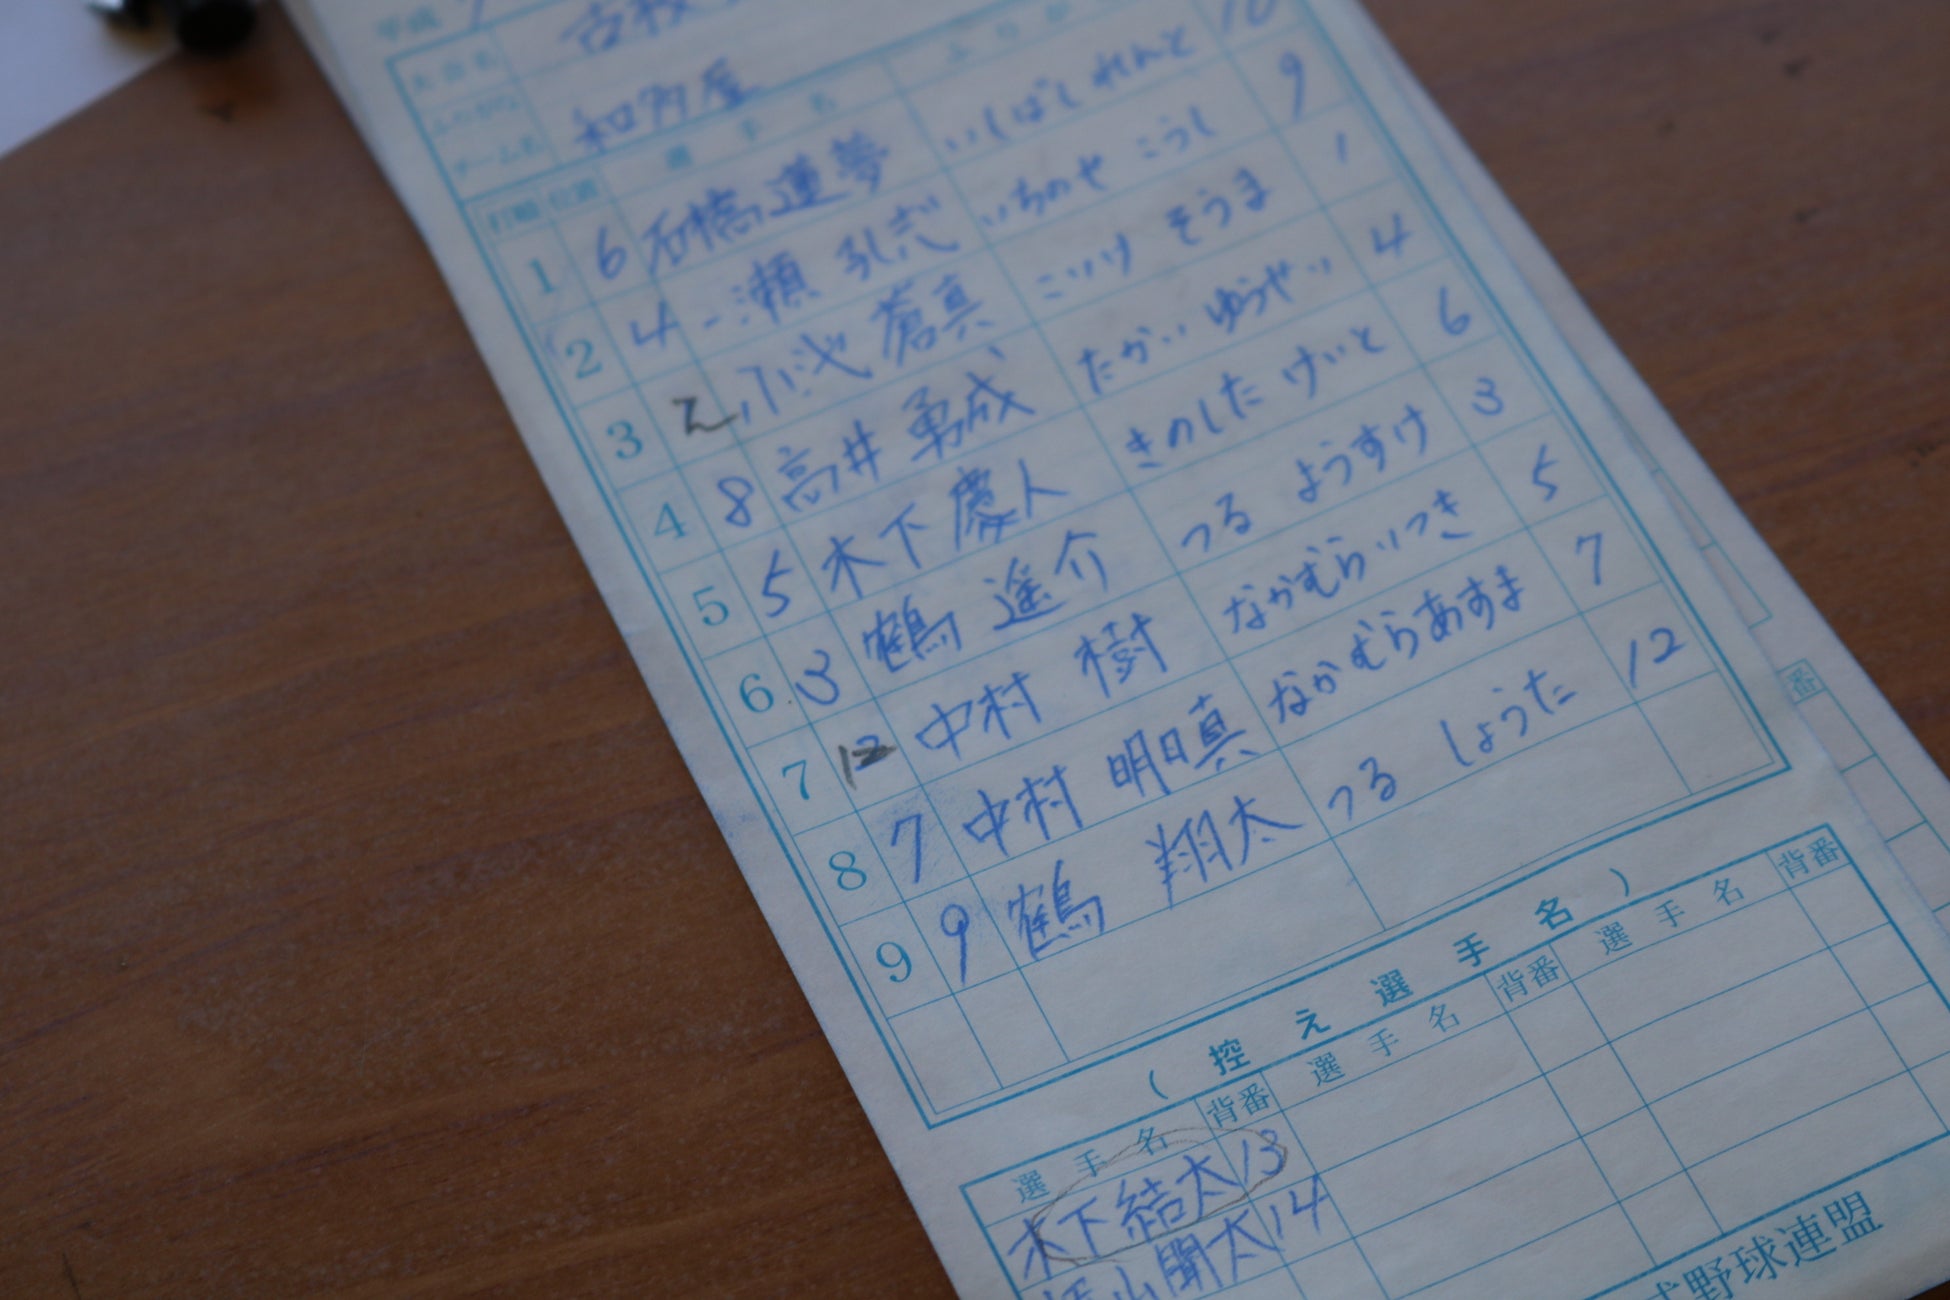 平成 7
大会名 古枝
ふりがな
チーム名 和多屋
打順 位置 選手名 ふりが
1 6 石橋蓮夢 いしばし れんと 10
2 4 一瀬 弘志 いちのせ こうし 9
3 2 小池 蒼真 こいけ そうま 1
4 8 高井 勇成 たかい ゆうせい 4
5 5 木下 慶人 きのした けいと 6
6 3 鶴 遥介 つる ようすけ 3
7 12 中村 樹 なかむら いつき 5
8 7 中村 明日真 なかむら あすま 7
9 9 鶴 翔太 つる しょうた 12
(控え選手名)
選手名 背番 選手名 背番 選手名 背番
木下結太 13
山 聞太 14
式野球連盟
番